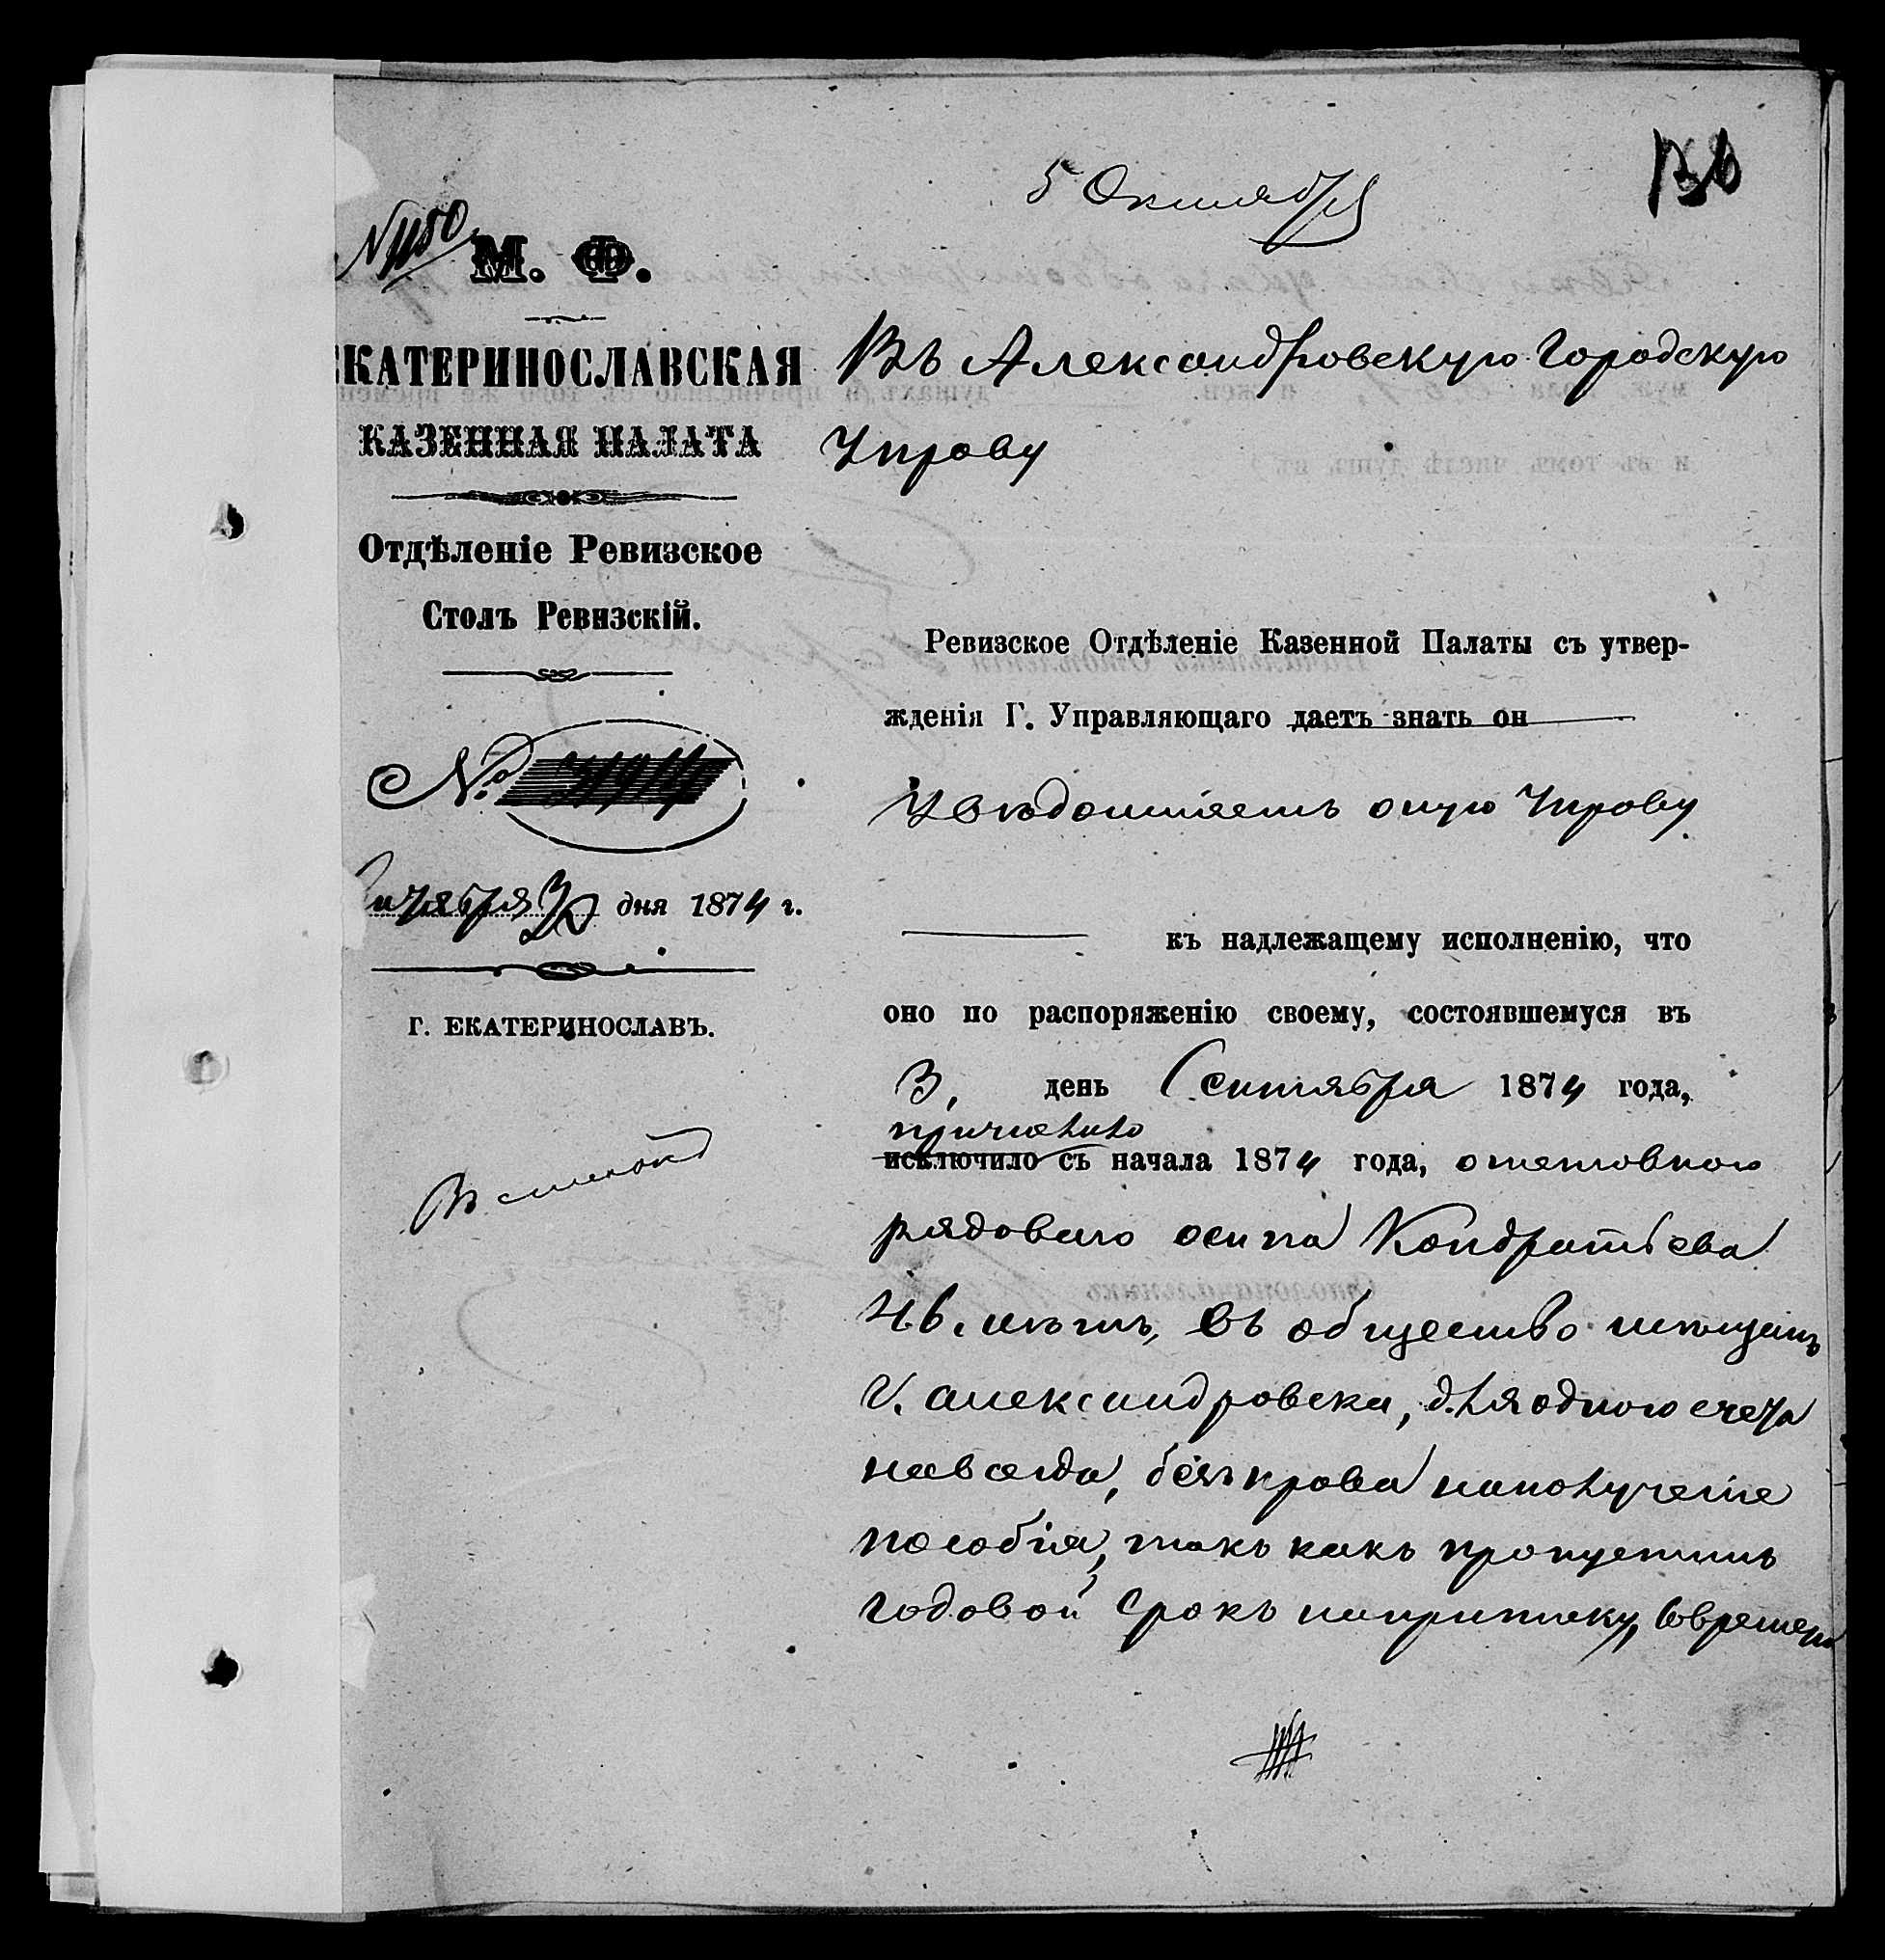 5 Октября
136
№ 1150
М. Ф.
ЕКАТЕРИНОСЛАВСКАЯ
КАЗЕННАЯ ПАЛАТА
Отдѣленіе Ревизское
Столъ Ревизскій.
№
30 дня 1874 г.
Г. ЕКАТЕРИНОСЛАВЪ.
Въ
Въ Александровскую Городскую
Управу
Ревизское Отдѣленіе Казенной Палаты съ утвер-
жденія Г. Управляющаго даетъ знать он
Увѣдомляетъ оную Управу
къ надлежащему исполненію, что
оно по распоряженію своему, состоявшемуся въ
3, день Сентября 1874 года,
причислило
исключило съ начала 1874 года, отставного
рядоваго Осипа Кондратьева
46. лѣтъ, въ общество мѣщанъ
г. Александровска, для одного счета
навсегда, безъ права на полученіе
пособія, такъ какъ пропустилъ
годовой срокъ на приписку, со времени